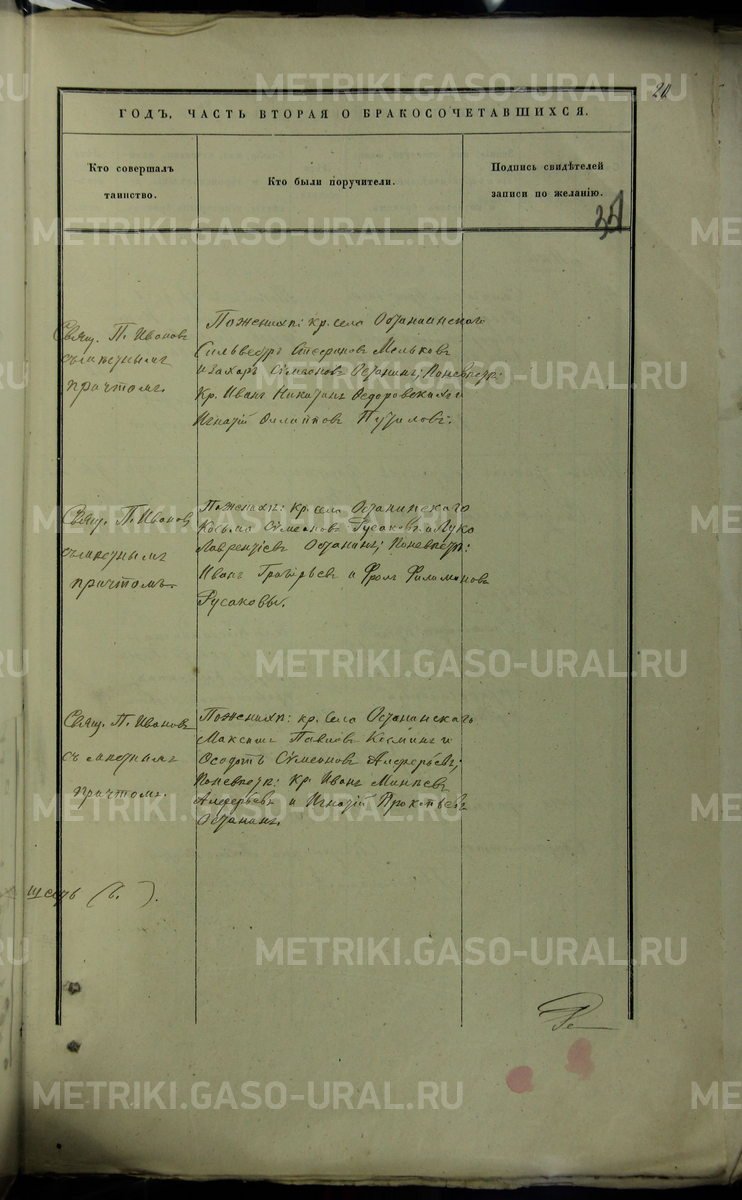 20
ГОДЪ, ЧАСТЬ ВТОРАЯ О БРАКОСОЧЕТАВШИХСЯ.
Кто совершалъ
таинство.
Кто были поручители.
Подпись свидѣтелей
записи по желанію.
Свящ. П. Ивановъ
съ местнымъ
причтомъ.
По женихѣ: кр. села Останинскаго
Сильвестръ Стефановъ Мальковъ
и Захаръ Сѵмеоновъ Останинъ; По невѣстѣ:
Кр. Иванъ Никитинъ Ѳедоровскихъ и
Игнатій Филиповъ Путиловъ.
Свящ. П. Ивановъ
съ местнымъ
причтомъ.
По женихѣ: кр. села Останинскаго
Козьма Сѵмеоновъ Русаковъ и Лука
Лаврентіевъ Останинъ; По невѣстѣ:
Иванъ Григорьевъ и Фролъ Филимоновъ
Русаковы.
Свящ. П. Ивановъ
съ местнымъ
причтомъ.
По женихѣ: кр. села Останинскаго
Максимъ Павловъ и
Ѳеодотъ Сѵмеоновъ Алферьевъ;
По невѣстѣ: кр. Иванъ Минеевъ
Алферьевъ и Игнатій Прокопьевъ
Останинъ.
шесть (6.).
METRIKI.GASO-URAL.RU